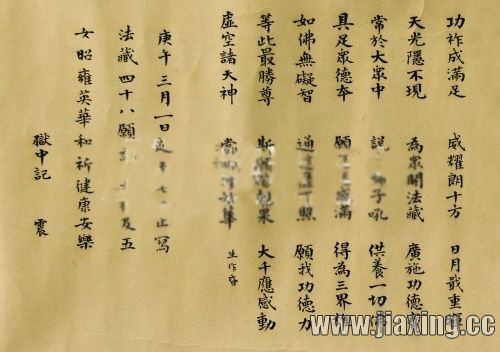 功祚成滿足 威耀朗十方 日月戢重
天光隱不現 為眾開法藏 廣施功德
常於大眾中 說 子吼 供養一切
具足眾德本 願 滿 得為三界
如佛無礙智 通 照 願我功德力
等此最勝尊 斯 果 大千應感動
虛空諸天神 當 華
庚午三月一日 止寫
法藏四十八願 及五
女昭雍英華和祈健康安樂
獄中記 震
www.jiaxing.cc